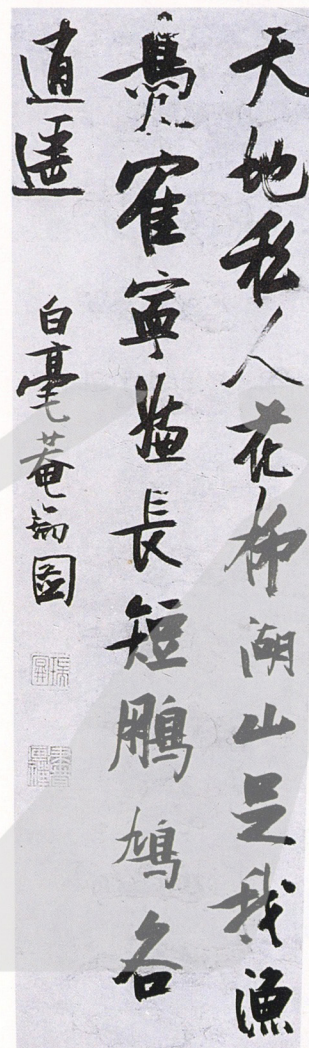 天地私人花柳湖山足我漁
鳧寉寧長短鵬鳩各
逍遙
白毫菴瑞圖